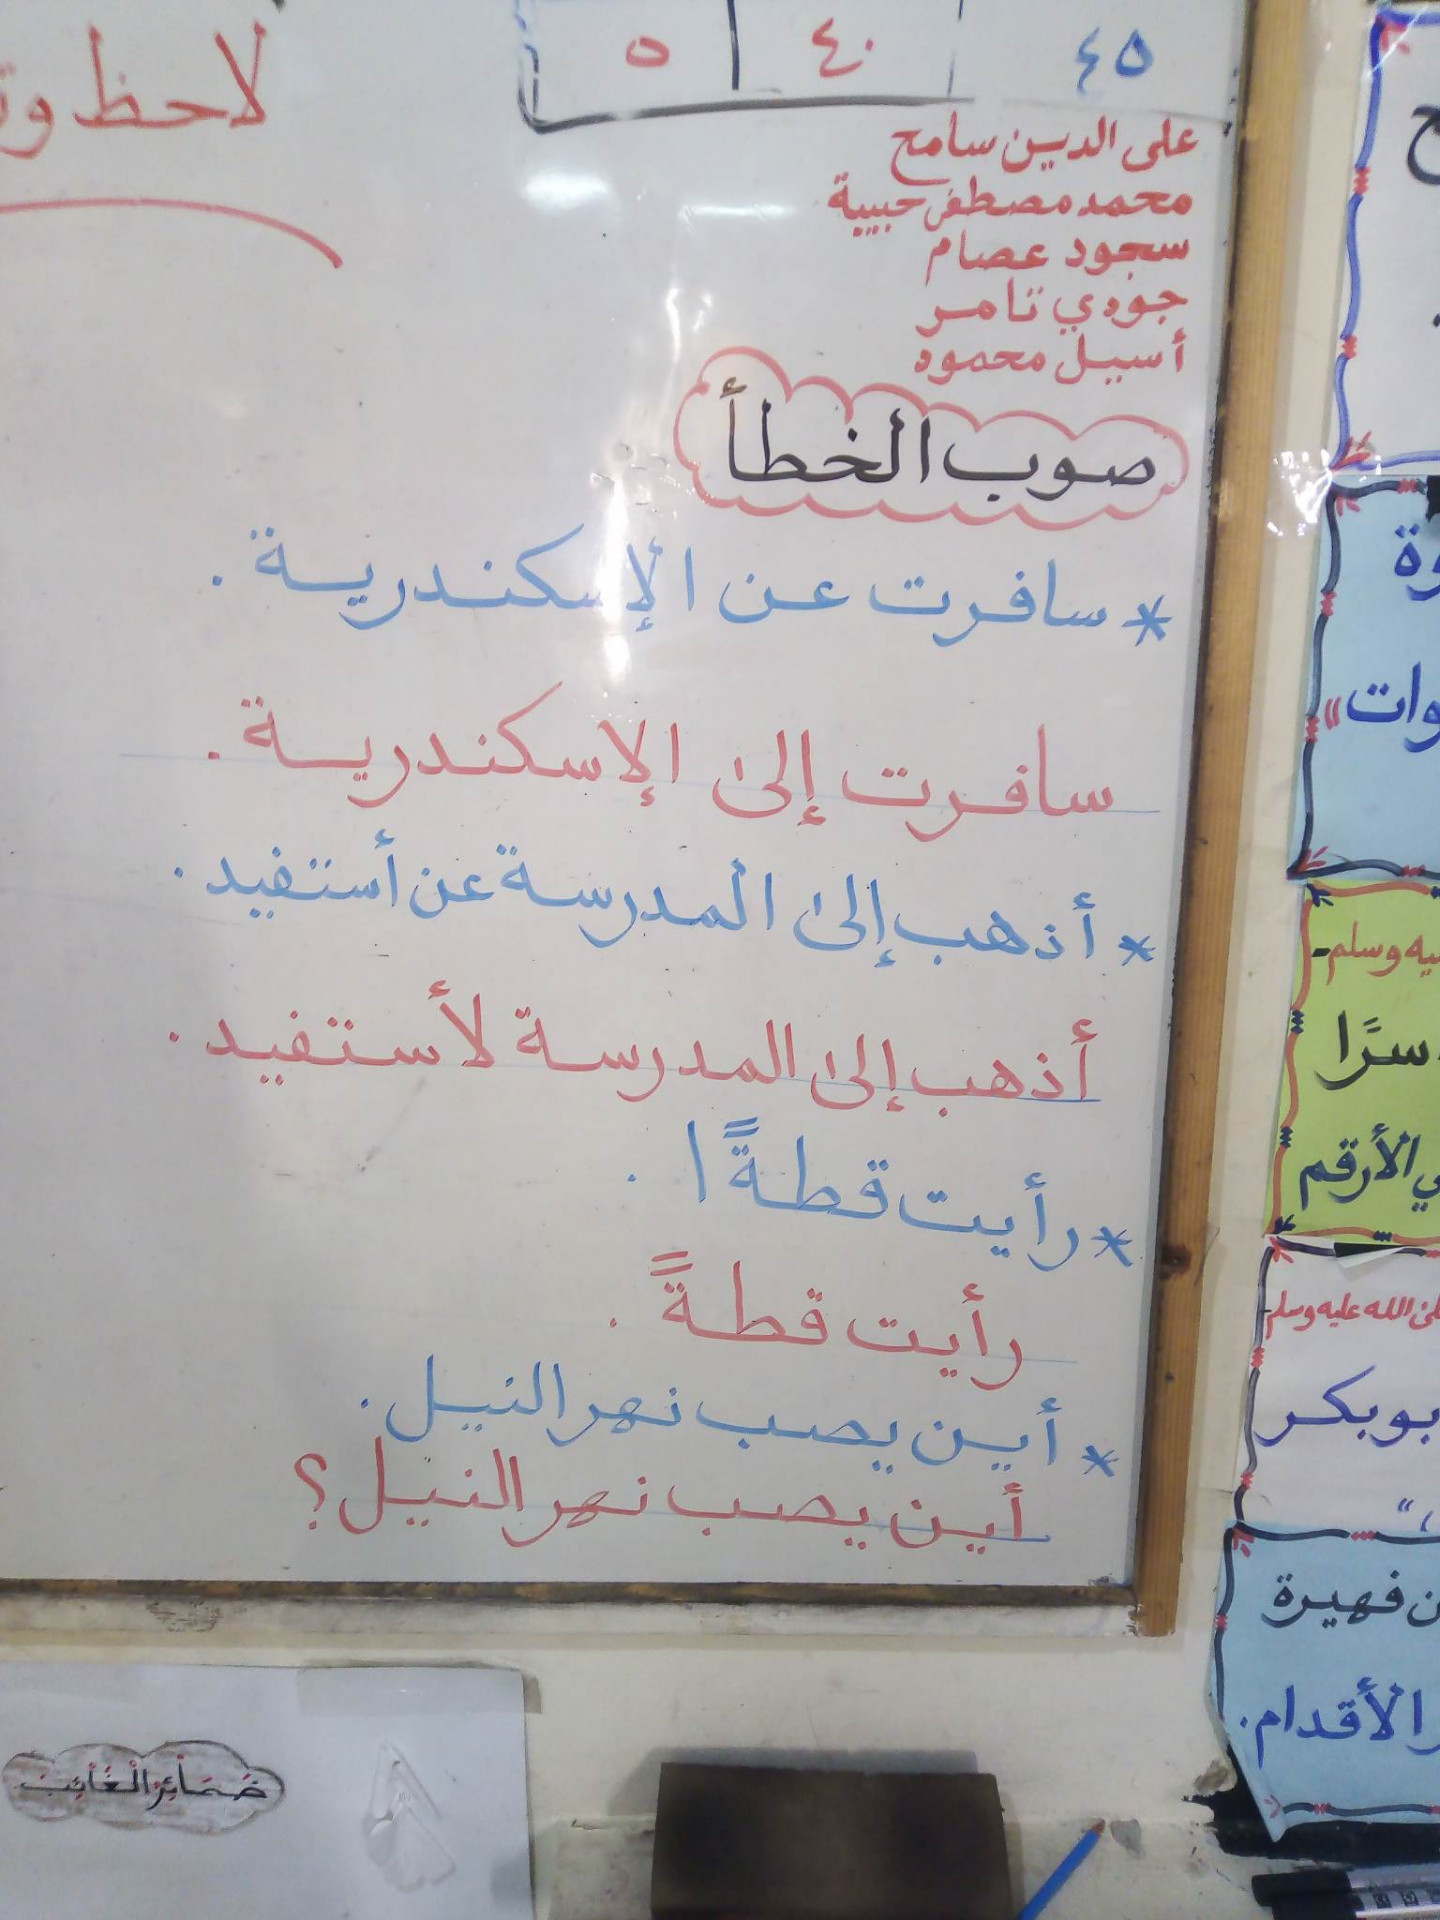 ٤٥ ٤٠ ٥
لاحظ
على الدين سامح
محمد مصطفى حبيبة
سجود عصام
جودي تامر
أسيل محمود
صوب الخطأ
* سافرت عن الإسكندرية .
سافرت إلى الإسكندرية .
* أذهب إلى المدرسة عن أستفيد .
أذهب إلى المدرسة لأستفيد .
* رأيت قطةً ا .
رأيت قطةً .
* أين يصب نهر النيل .
أين يصب نهر النيل ؟
ضمائر الغائب
سرًا
الأرقم
عليه وسلم
بوبكر
فهيرة
الأقدام .